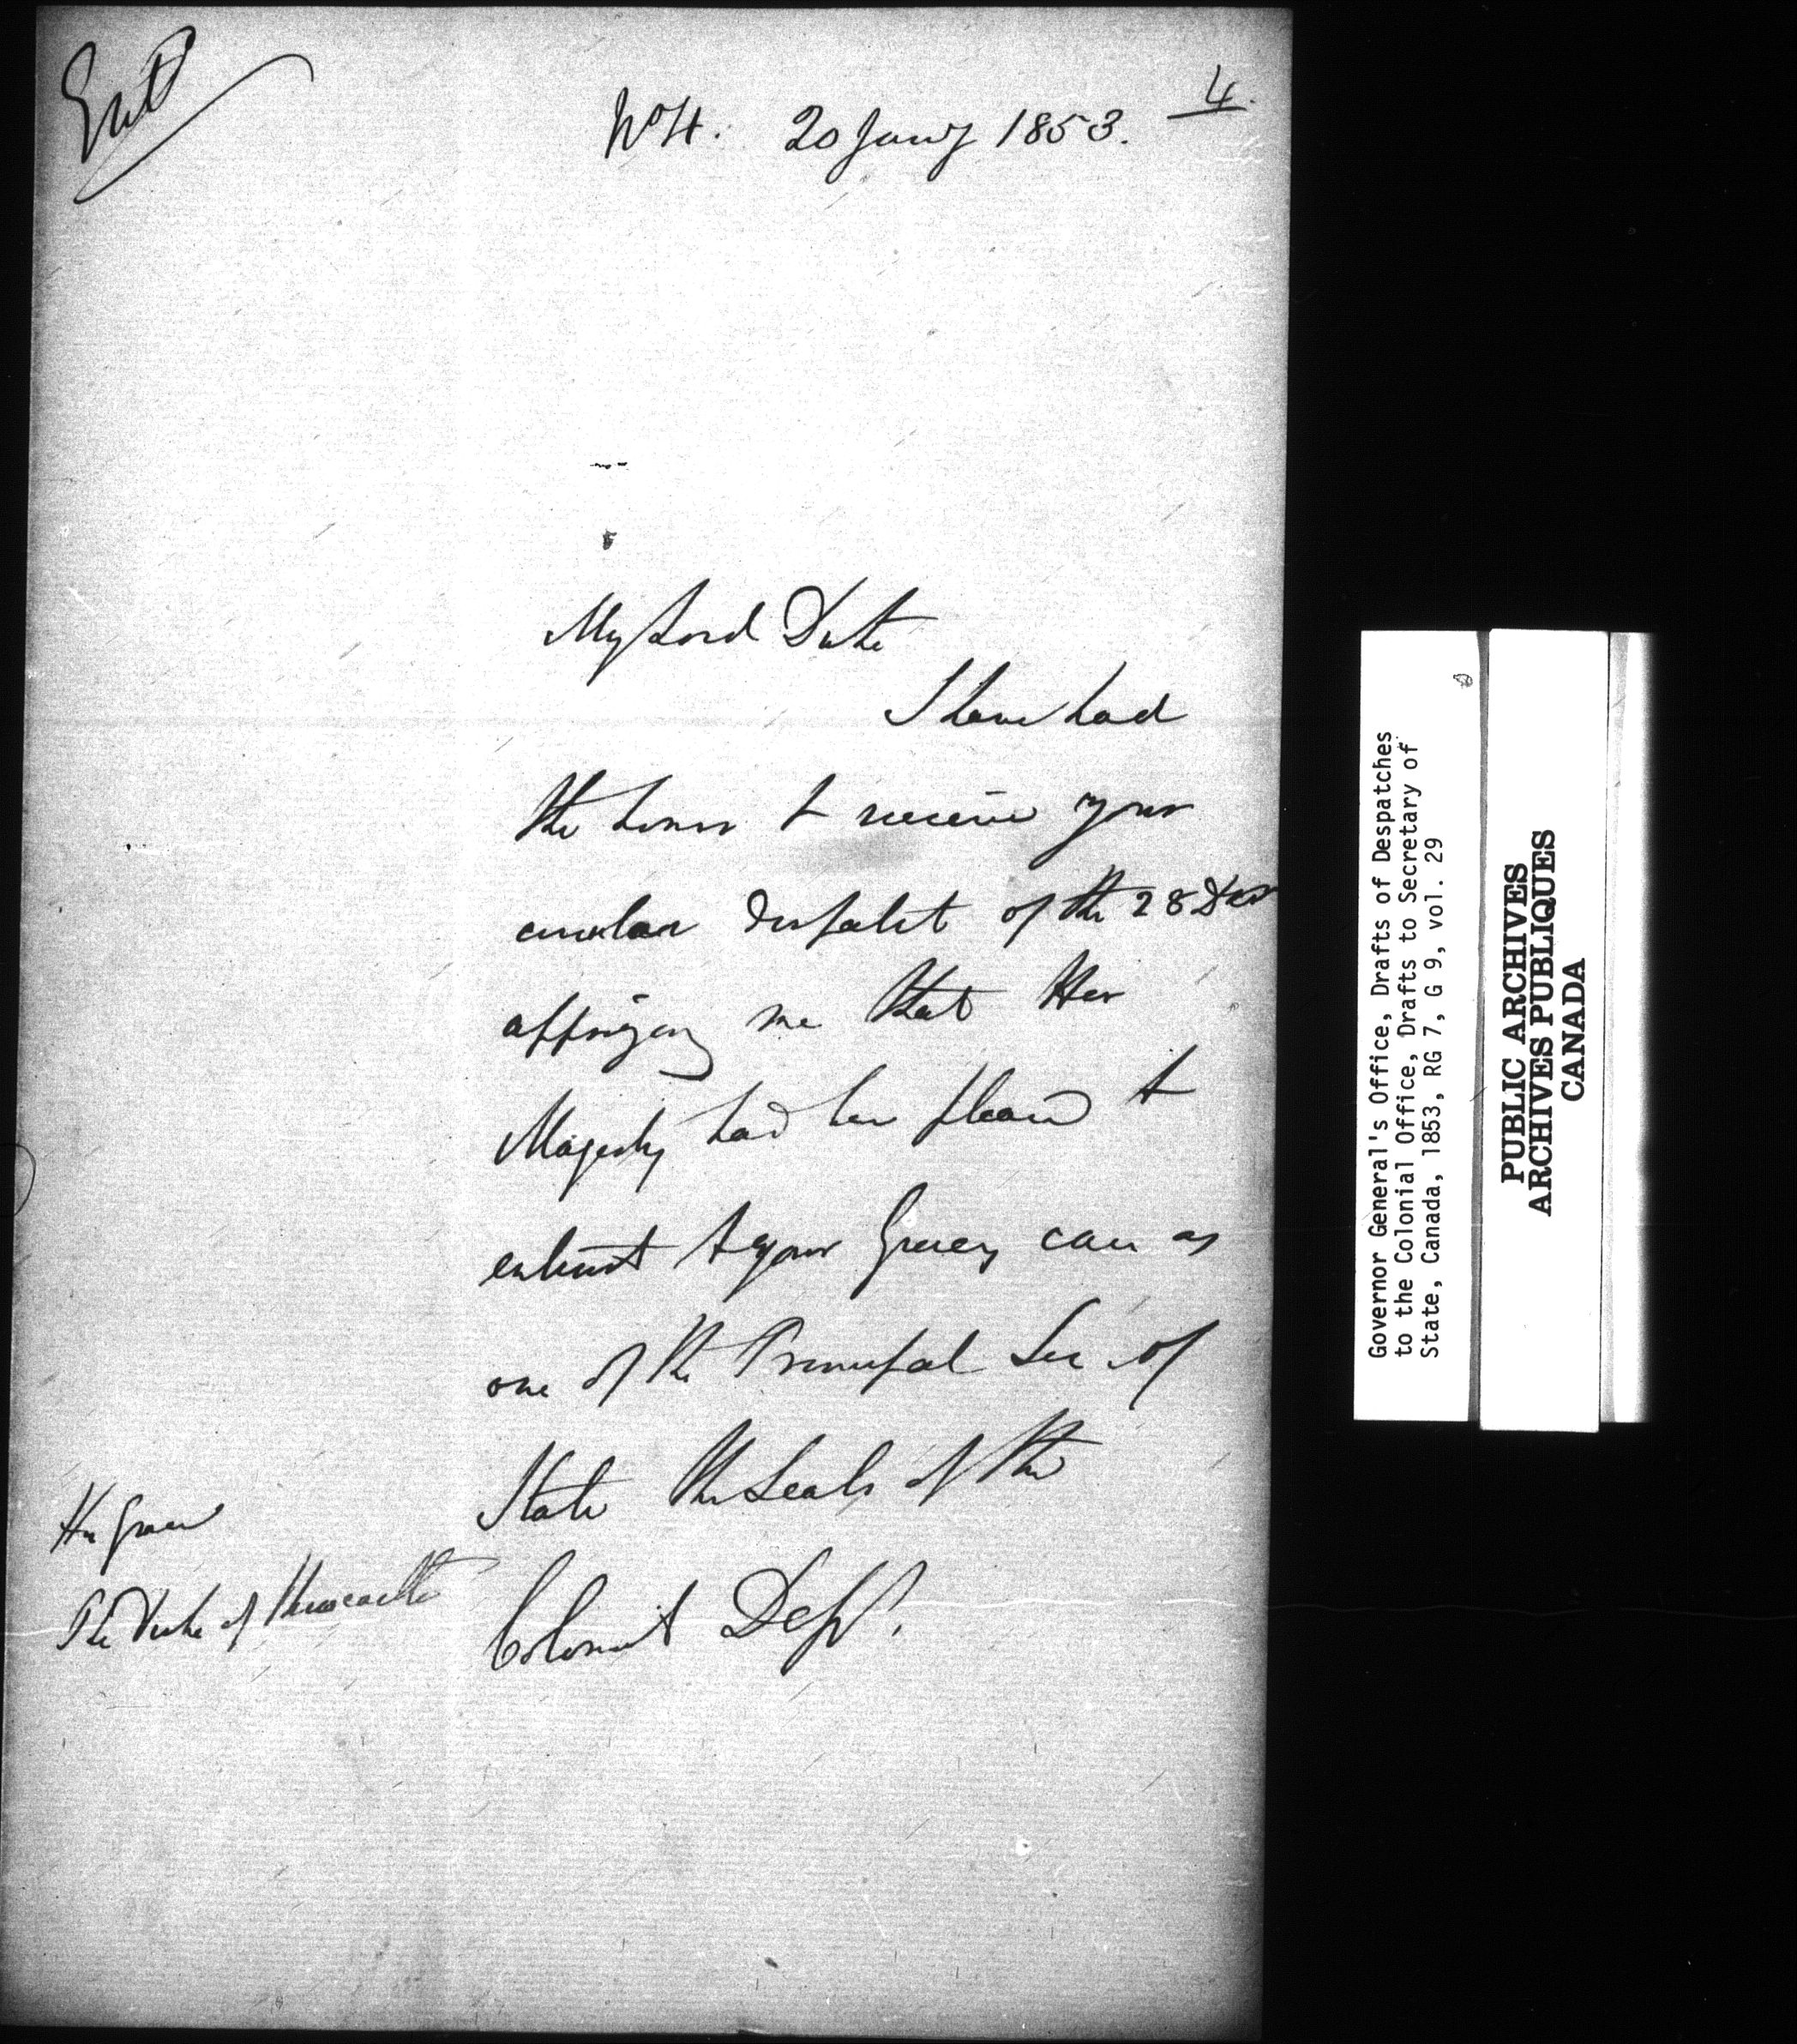 Entd
No 4. 20 Jany 1853.
4.
My Lord Duke
I have had
the honor to receive your
circular despatch of the 28 Decr
apprizing me that Her
Majesty had been pleased to
entrust to your Grace's care as
one of the Principal Sec of
State the Seals of the
Colonial Dept.
His Grace
The Duke of Newcastle
Governor General's Office, Drafts of Despatches
to the Colonial Office, Drafts to Secretary of
State, Canada, 1853, RG 7, G 9, vol. 29
PUBLIC ARCHIVES
ARCHIVES PUBLIQUES
CANADA